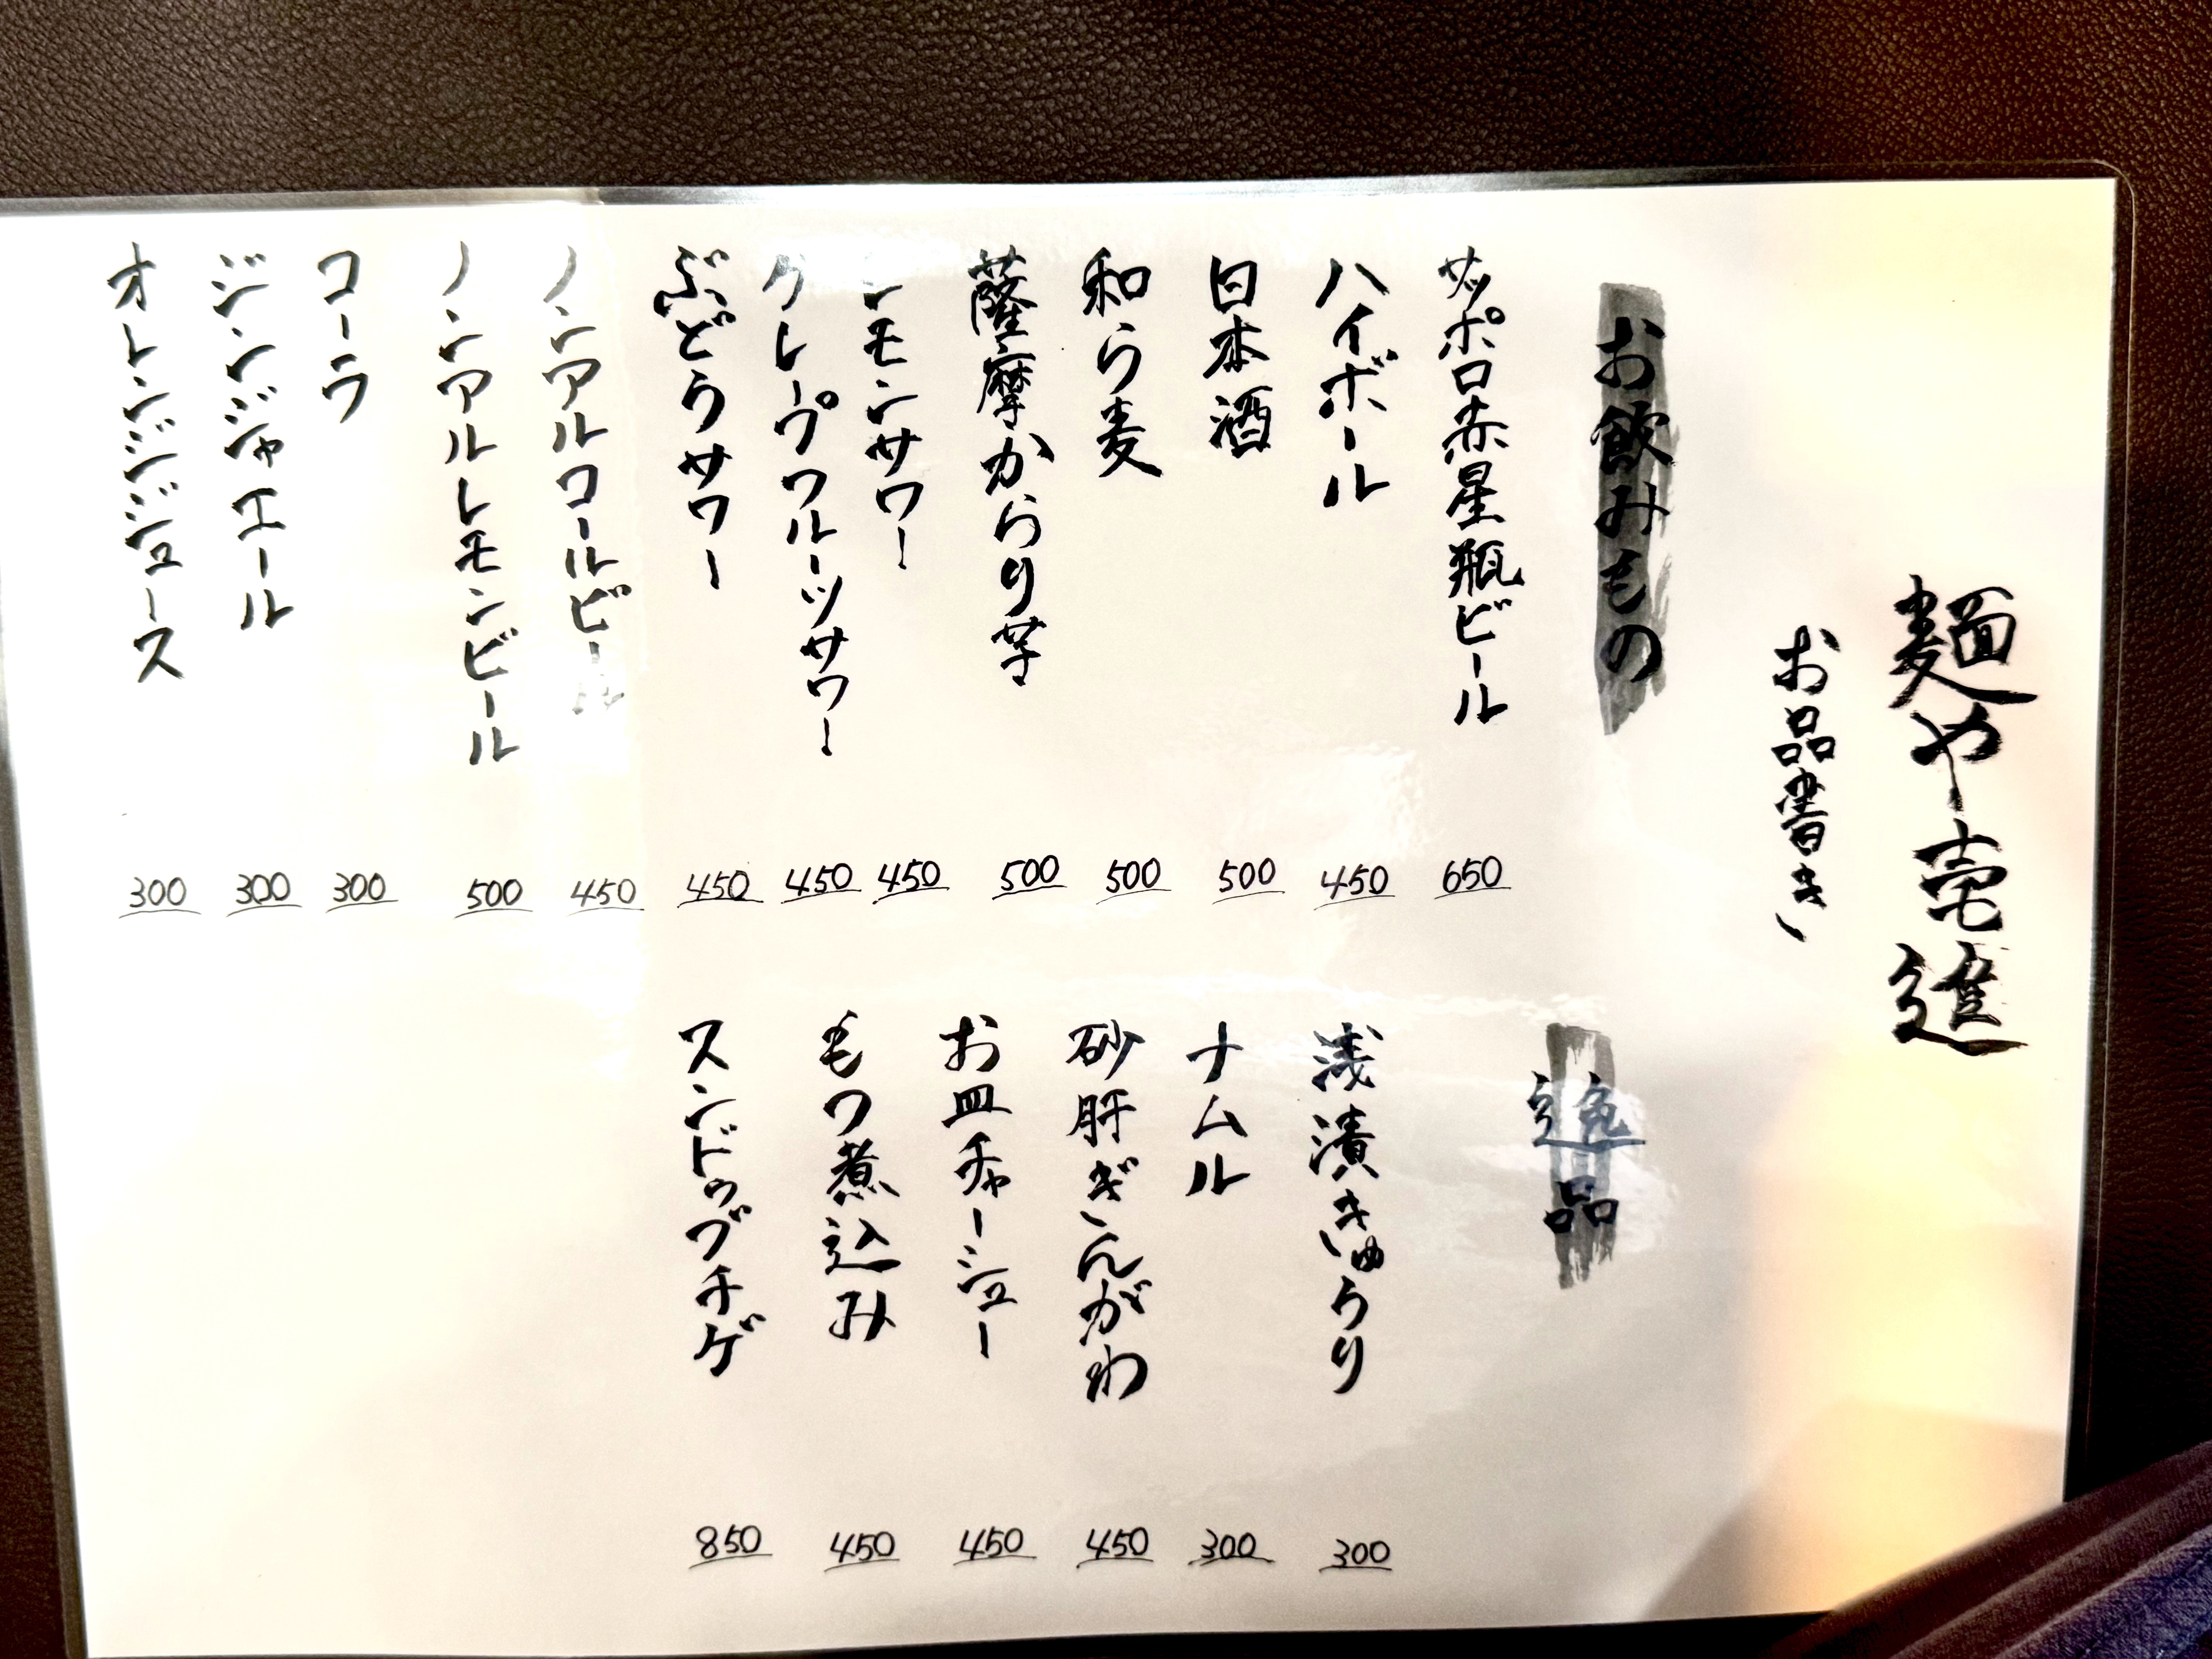 麺や壱進
お品書き
お飲みもの
サッポロ赤星瓶ビール 650
ハイボール 450
日本酒 500
和ら麦 500
薩摩からり芋 500
レモンサワー 450
グレープフルーツサワー 450
ぶどうサワー 450
ノンアルコールビール 450
ノンアルレモンビール 500
コーラ 300
ジンジャエール 300
オレンジジュース 300
逸品
浅漬きゅうり 300
ナムル 300
砂肝ぎんがわ 450
お皿チャーシュー 450
もつ煮込み 450
スンドゥブチゲ 850